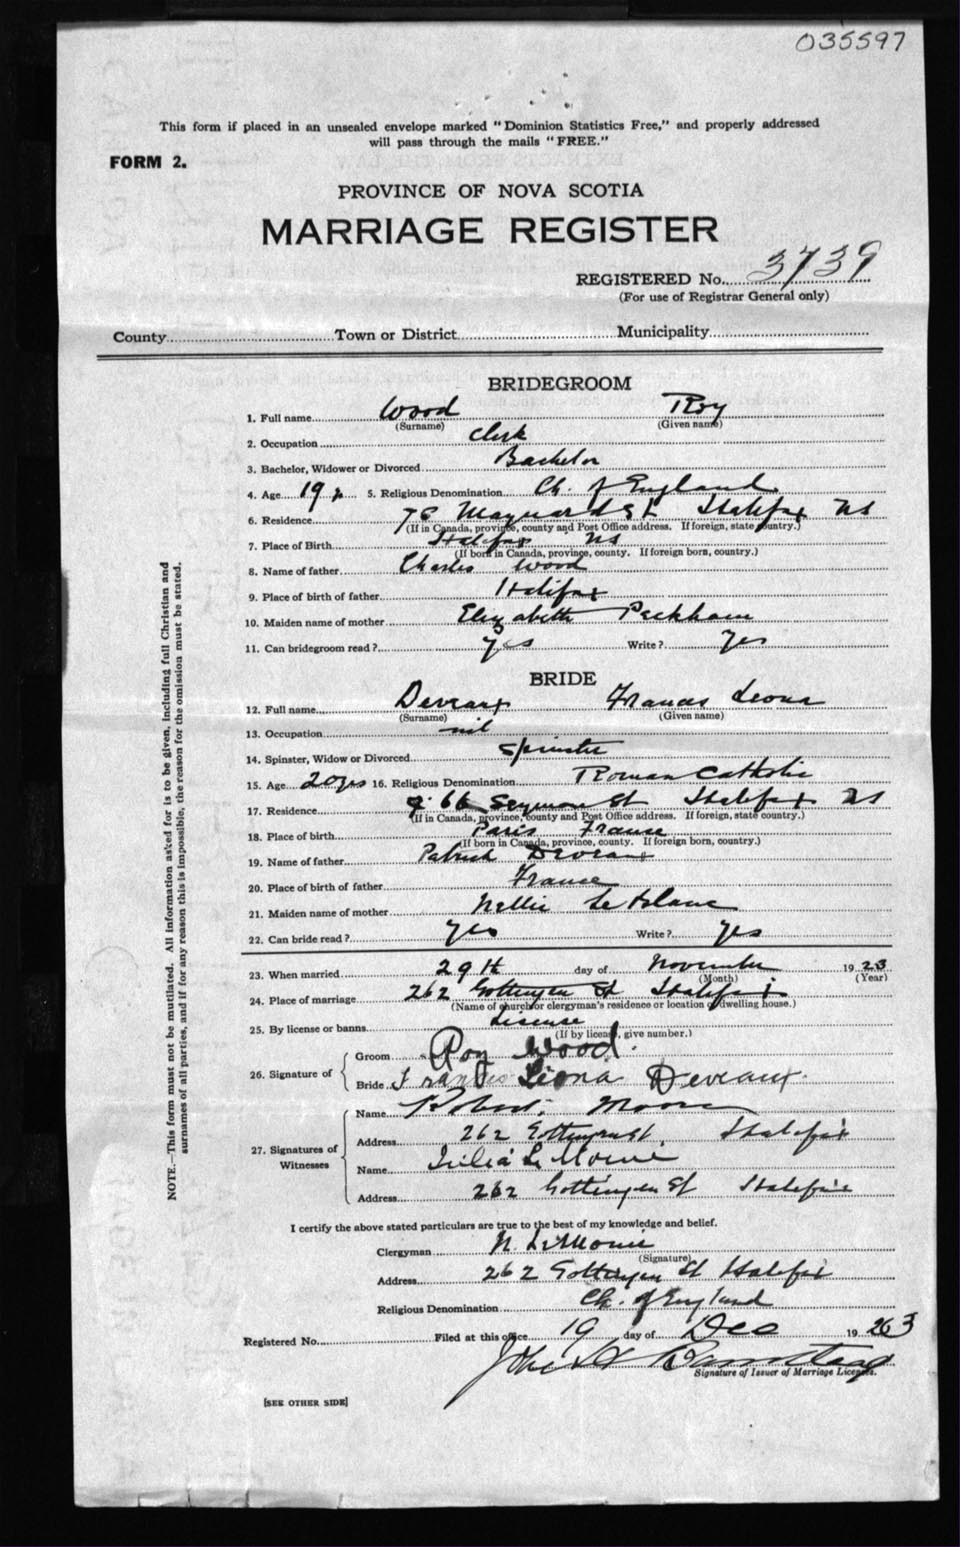 035597
This form if placed in an unsealed envelope marked "Dominion Statistics Free," and properly addressed
will pass through the mails "FREE."
FORM 2.
PROVINCE OF NOVA SCOTIA
MARRIAGE REGISTER
REGISTERED No. 3739
(For use of Registrar General only)
County Town or District Municipality
BRIDEGROOM
1. Full name Wood Roy
(Surname) (Given name)
2. Occupation Clerk
3. Bachelor, Widower or Divorced Bachelor
4. Age 19 5. Religious Denomination Ch. of England
6. Residence Maynard St Halifax NS
(If in Canada, province, county and Post Office address. If foreign, state country.)
7. Place of Birth Halifax NS
(If born in Canada, province, county. If foreign born, country.)
8. Name of father Charles Wood
9. Place of birth of father Halifax
10. Maiden name of mother Elizabeth Peckham
11. Can bridegroom read? yes Write? yes
BRIDE
12. Full name Deveaux Francis Leona
(Surname) (Given name)
13. Occupation nil
14. Spinster, Widow or Divorced Spinster
15. Age 20 yrs 16. Religious Denomination Roman Catholic
17. Residence 66 Seymour St Halifax NS
(If in Canada, province, county and Post Office address. If foreign, state country.)
18. Place of birth Paris France
(If born in Canada, province, county. If foreign born, country.)
19. Name of father Patrick Deveaux
20. Place of birth of father France
21. Maiden name of mother Nellie Le Blanc
22. Can bride read? yes Write? yes
23. When married 29th day of November 1923
(Month) (Year)
24. Place of marriage 262 Gottingen St Halifax
(Name of church or clergyman's residence or location of dwelling house.)
25. By license or banns License
(If by license, give number.)
26. Signature of
Groom Roy Wood.
Bride Francis Leona Deveaux.
27. Signatures of Witnesses
Name Robert Moore
Address 262 Gottingen St, Halifax
Name
Address 262 Gottingen St Halifax
I certify the above stated particulars are true to the best of my knowledge and belief.
Clergyman N. LeMoine
(Signature)
Address 262 Gottingen St Halifax
Religious Denomination Ch. of England
Registered No. Filed at this office 19 day of Dec 19 23
Signature of Issuer of Marriage Licenses.
[SEE OTHER SIDE]
NOTE.—This form must not be mutilated. All information asked for is to be given, including full Christian and
surnames of all parties, and if for any reason this is impossible, the reason for the omission must be stated.